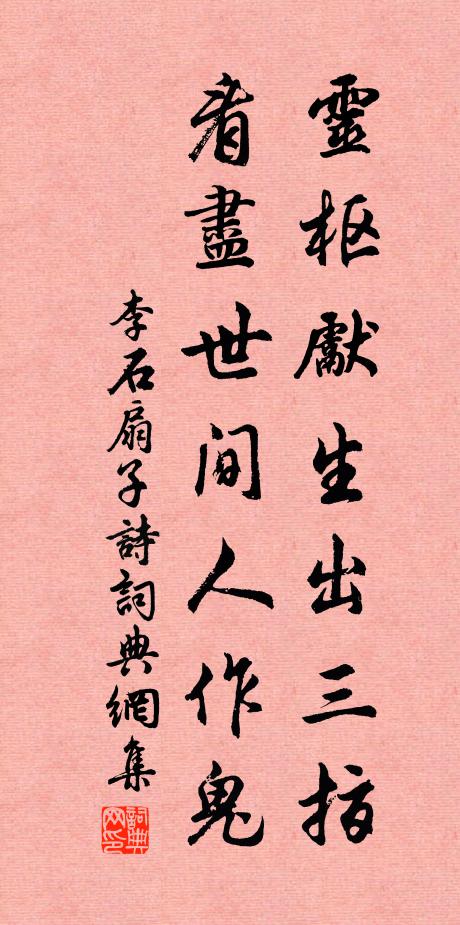 靈樞獻生出三指
看盡世間人作鬼
李石扇子詩詞典網集
詞典網印